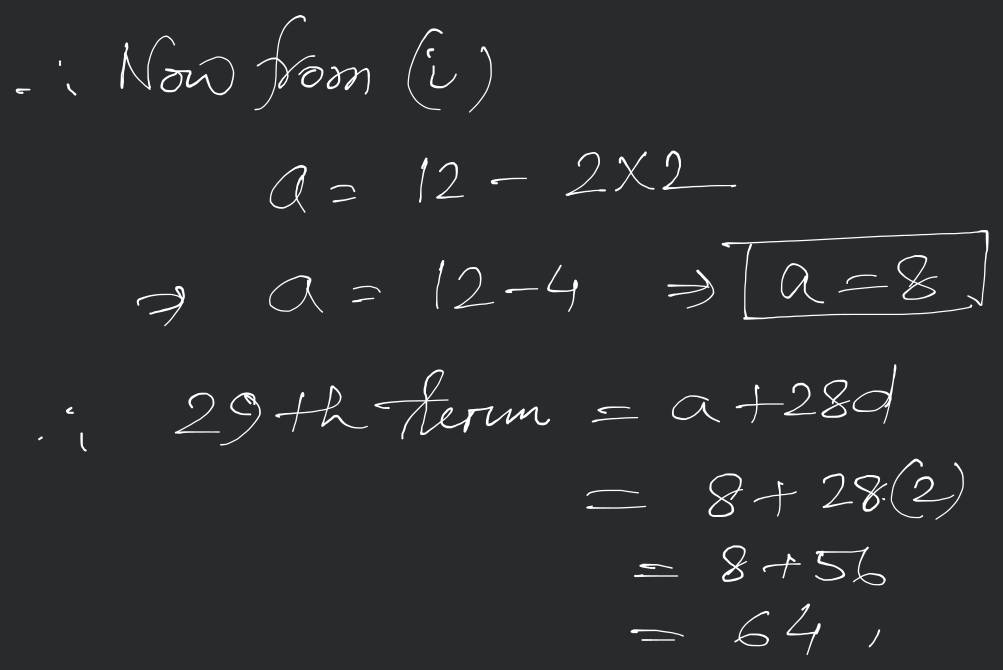 ∴ Now from (i)
a = 12 - 2×2
⇒ a = 12-4 ⇒ a = 8
∴ 29th term = a + 28d
= 8 + 28(2)
= 8 + 56
= 64,